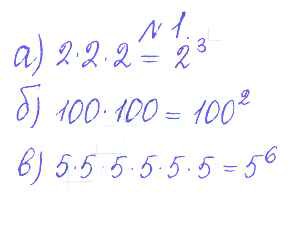 № 1.
а) 2·2·2 = 2³
б) 100·100 = 100²
в) 5·5·5·5·5·5 = 5⁶